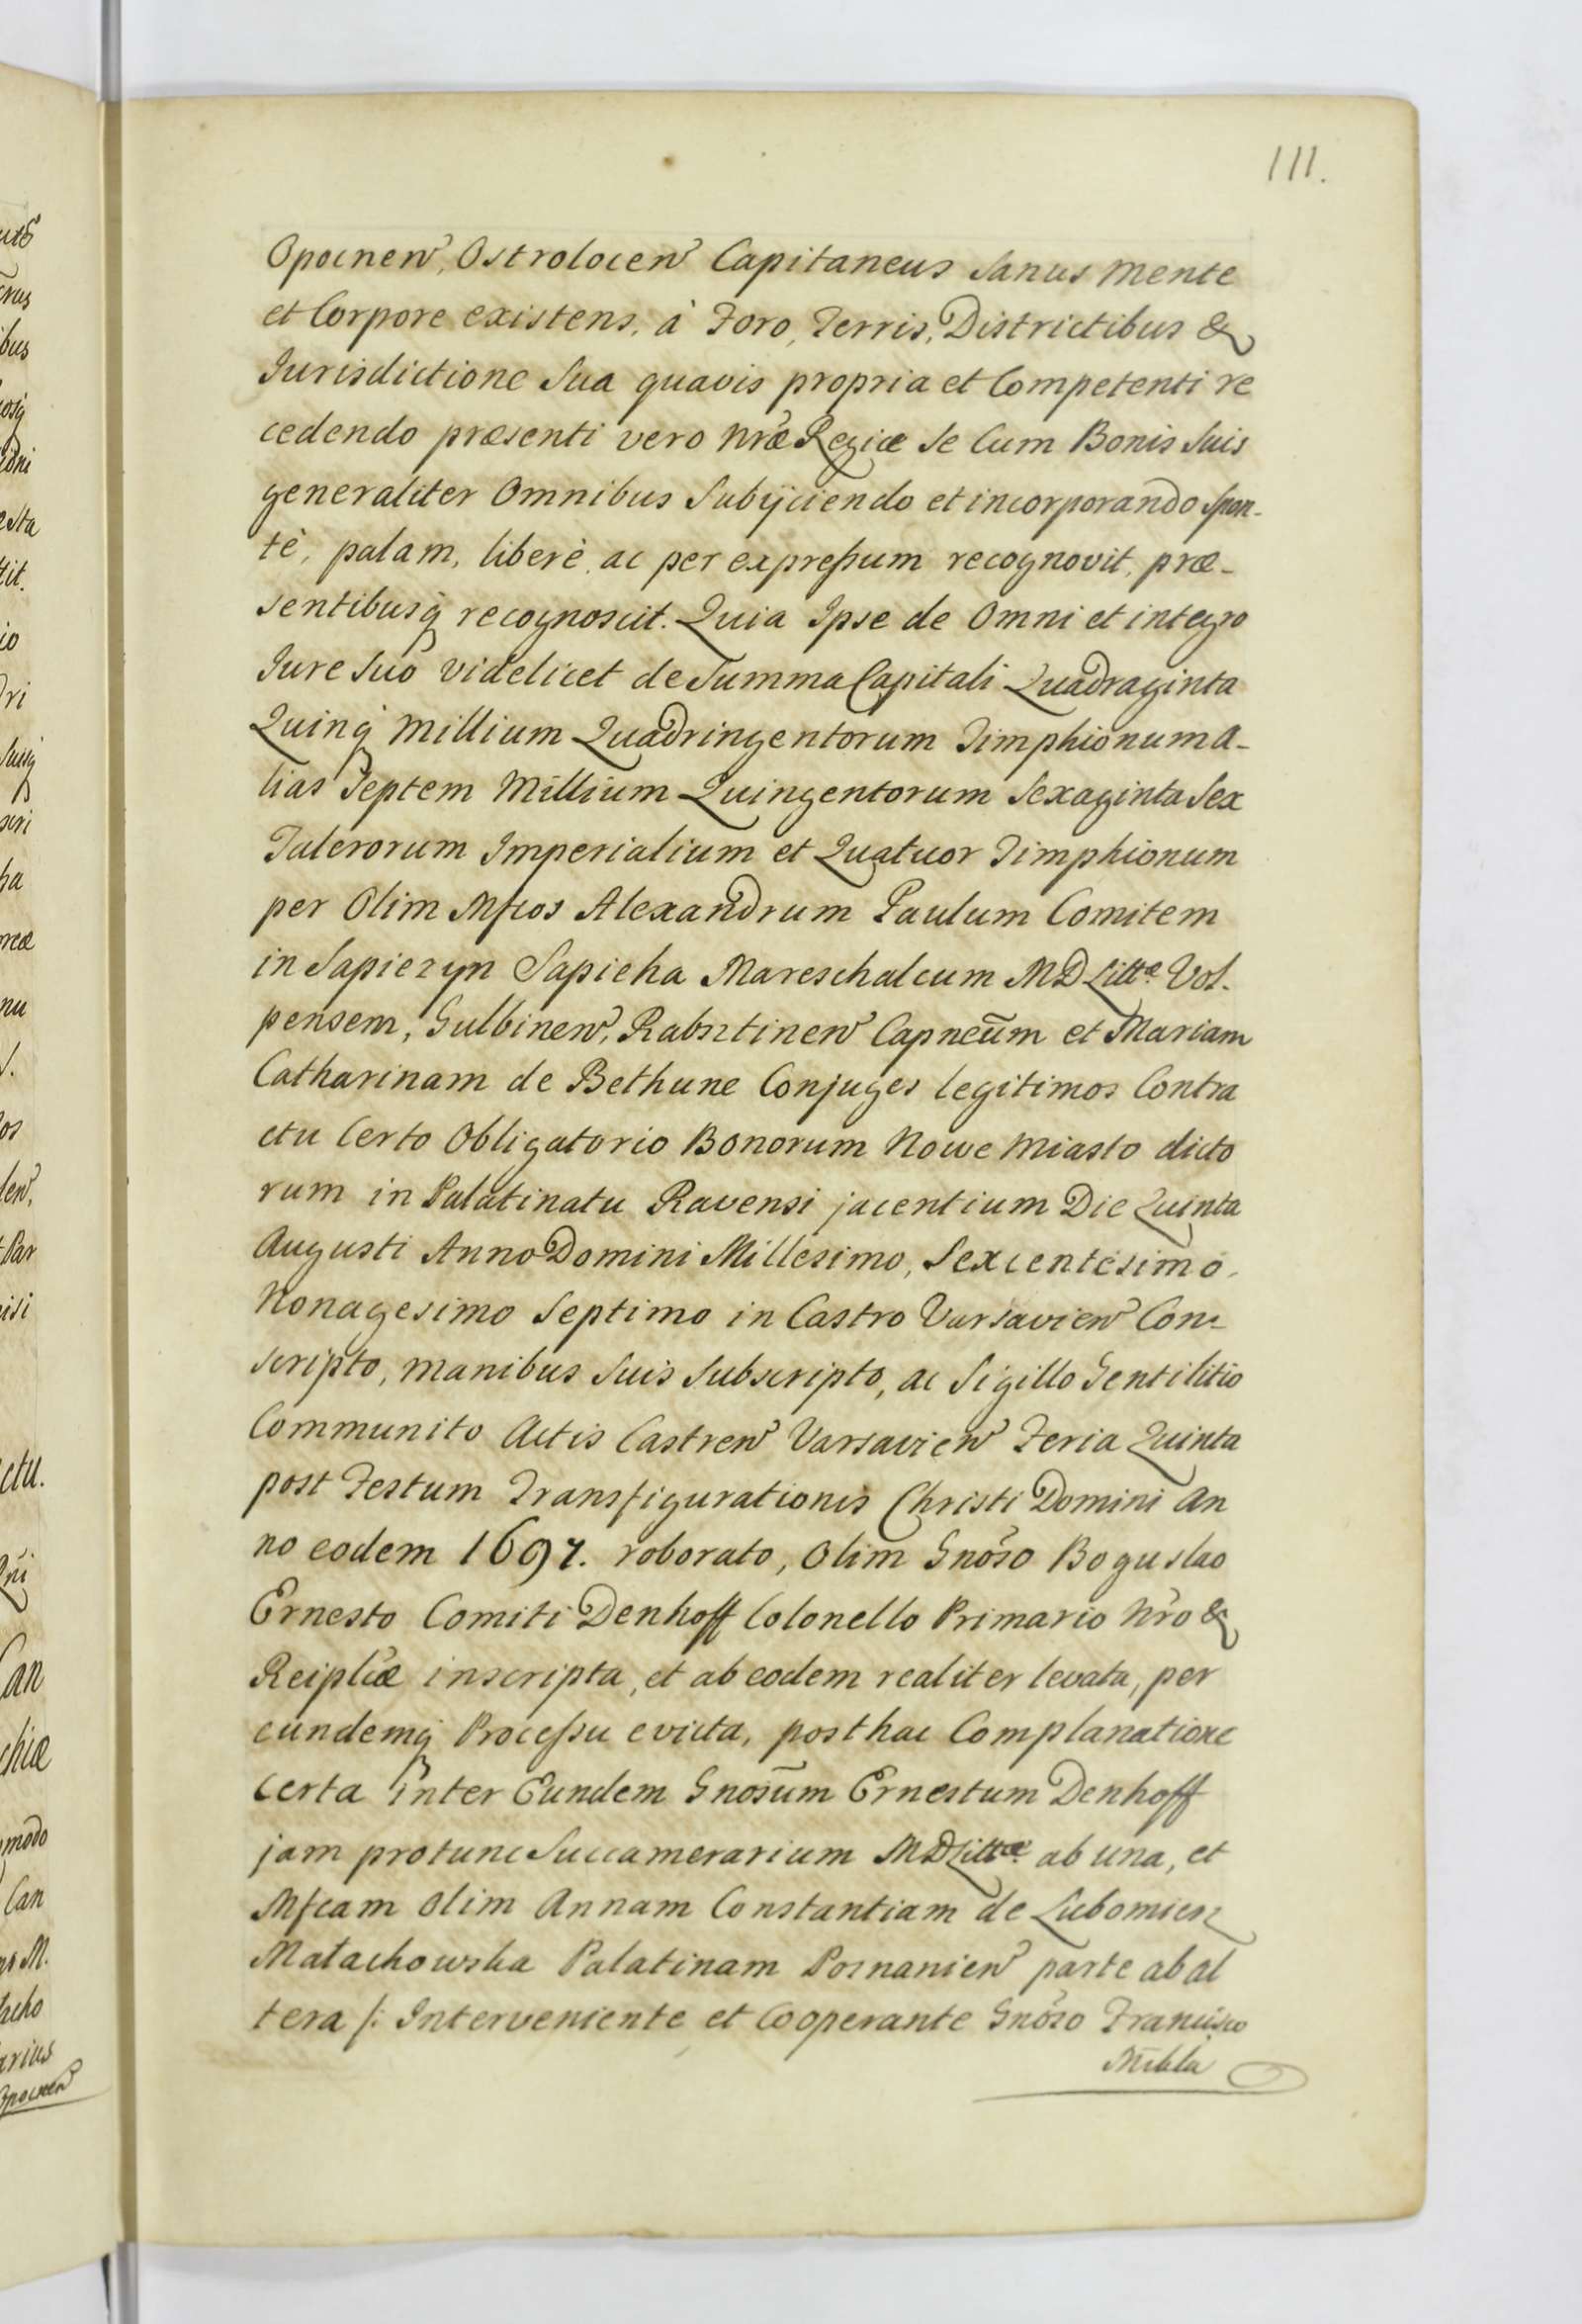 111.
Opocnen, Ostrolocen Capitaneus Sanus mente
et Corpore existens, à Foro, Terris, Districtibus &
Jurisdictione Sua quavis propria et Competenti re
cedendo præsenti vero nræ Regiæ Se Cum Bonis Suis
generaliter Omnibus Subijciendo et incorporando spon-
tè, palam, liberè, ac per expreßum recognovit, præ-
sentibusq recognoscit. Quia Ipse de Omni et integro
Jure Suo videlicet de Summa Capitali Quadraginta
Quinq millium Quadringentorum Timphionum A-
lias Septem Millium Quingentorum Sexaginta Sex
Talerorum Imperialium et Quatuor Timphionum
per Olim Mfcos Alexandrum Paulum Comitem
in Sapiezyn Sapieha Mareschalcum MD Littæ Vol-
pensem, Gulbinen, Rabsztinen Capneūm et Mariam
Catharinam de Bethune Conjuges legitimos Contra
ctu Certo Obligatorio Bonorum Nowe Miasto dicto
rum in Palatinatu Ravensi jacentium Die Quinta
Augusti Anno Domini Millesimo, Sexcentesimo,
Nonagesimo Septimo in Castro Varsavien Con-
scripto, manibus Suis Subscripto, ac Sigillo Gentilitio
Communito Actis Castren Varsavien Feria Quinta
post Festum Transfigurationis Christi Domini An
no eodem 1697. roborato, Olim Gnoso Boguslao
Ernesto Comiti Denhoff Colonello Primario Nro &
Reiplicæ inscripta, et ab eodem realiter levata, per
eundemq Proceßu evicta, posthac Complanatione
Certa inter Eundem Gnosūm Ernestum Denhoff
jam protunc Succamerarium MD Littæ ab una, et
Mfcam olim Annam Constantiam de Lubomierz
Małachowska Palatinam Posnanien parte ab al
tera /: Interveniente et Cooperante Gnoso Francisco